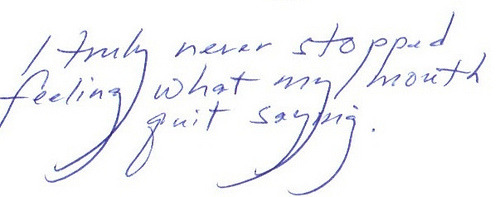 I truly never stopped
feeling what my mouth
quit saying.